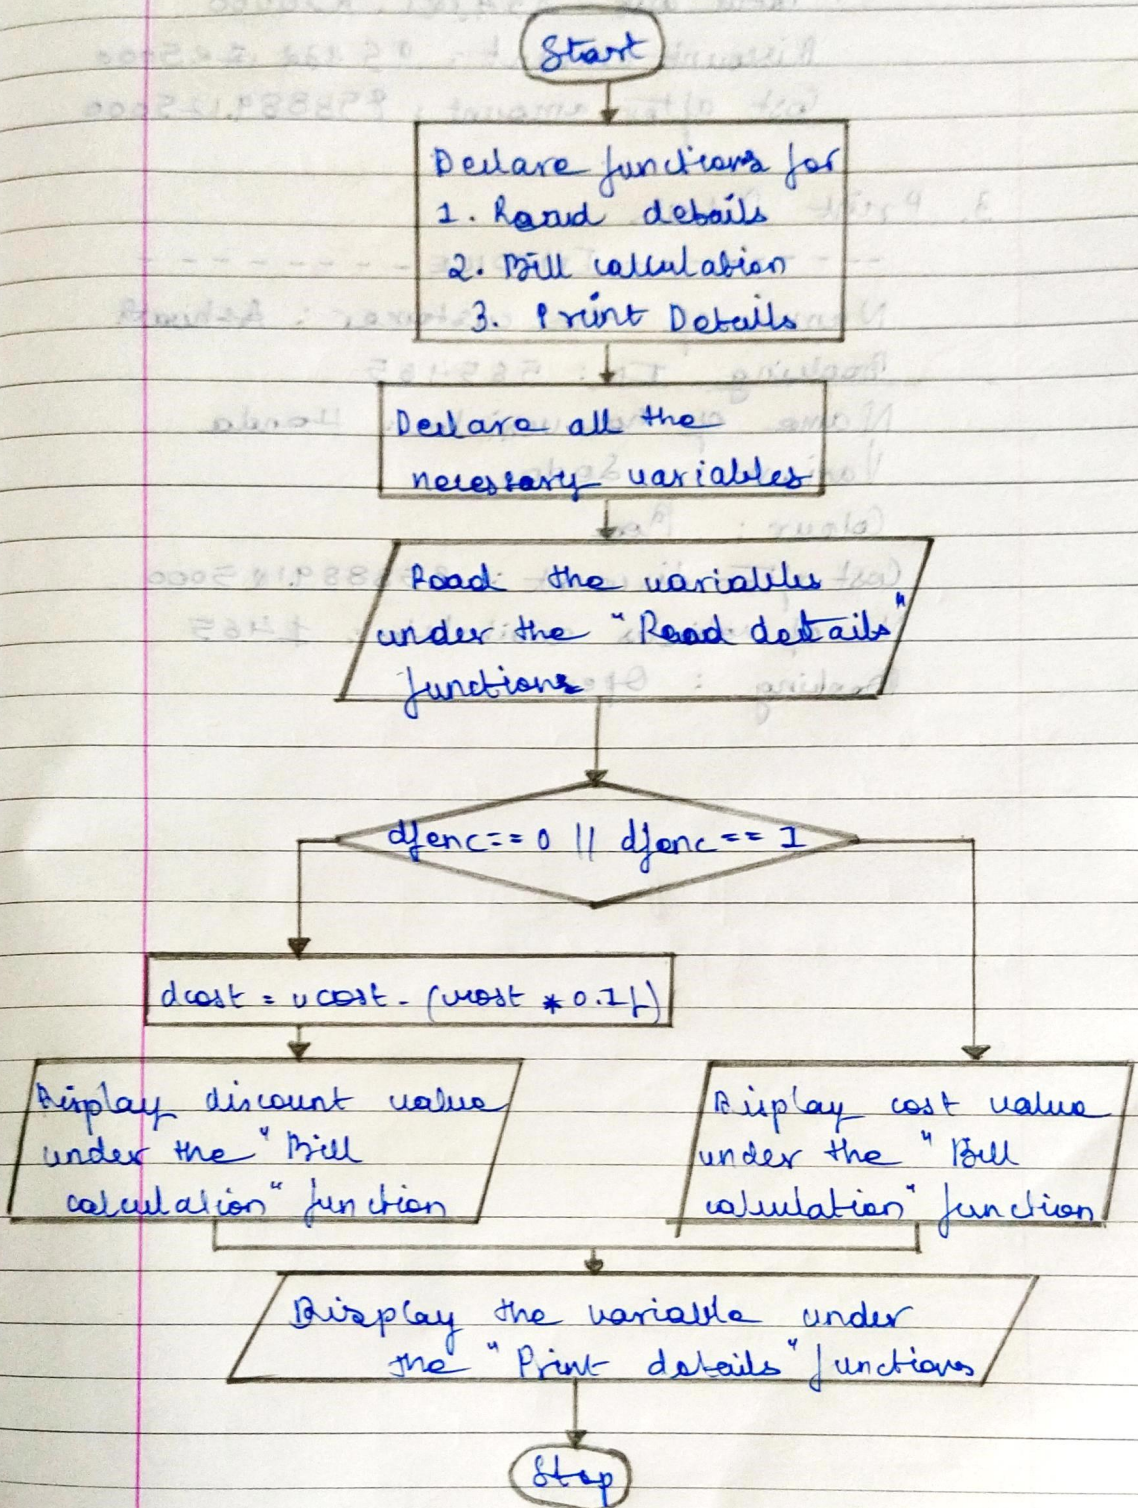 Start
Declare functions for
1. Read details
2. Bill calculation
3. Print Details
Declare all the
necessary variables
Read the variables
under the "Read details"
functions
dfenc==0 || dfenc==1
dcost = vcost - (vcost * 0.1f)
Display discount value
under the "Bill
calculation" function
Display cost value
under the "Bill
calculation" function
Display the variable under
the "Print details" functions
Stop